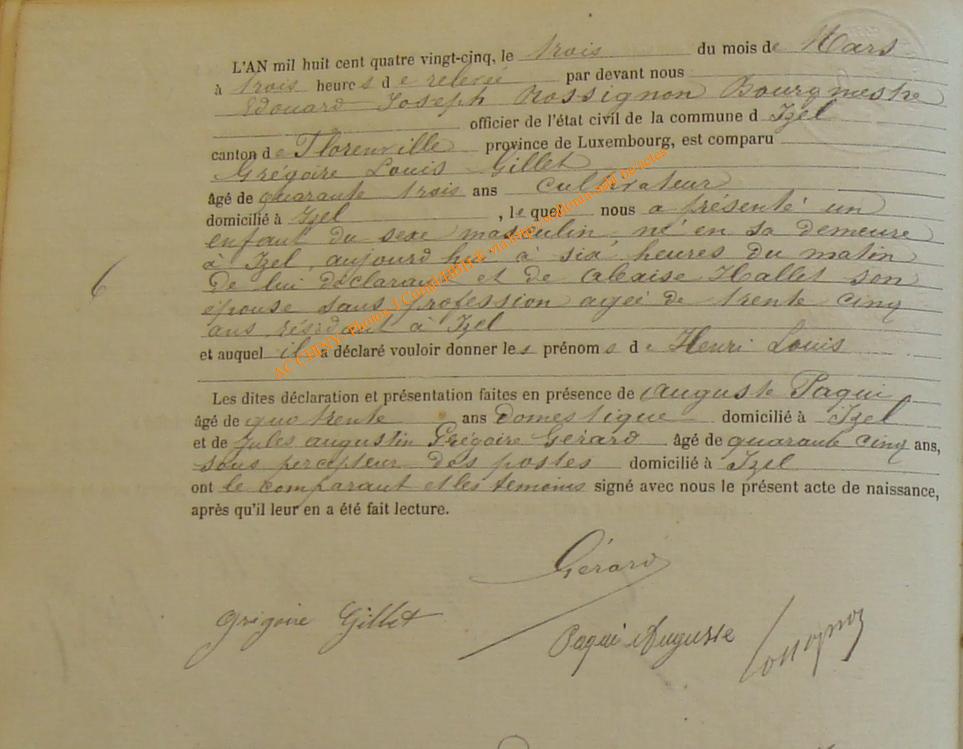 L'AN mil huit cent quatre vingt-cinq, le trois du mois de Mars
à trois heures de relevée par devant nous
Edouard Joseph Rossignon Bourgmestre
officier de l'état civil de la commune d Izel
canton de Florenville province de Luxembourg, est comparu
Grégoire Louis Gillet
âgé de quarante trois ans Cultivateur
domicilié à Izel , lequel nous a présenté un
enfant du sexe masculin, né en sa demeure
à Izel, aujourd'hui à six heures du matin
de lui déclarant et de Hallet son
épouse sans profession agée de trente cinq
ans résidant à Izel
6
et auquel il a déclaré vouloir donner les prénoms de Henri Louis
Les dites déclaration et présentation faites en présence de Auguste Paqui
âgé de quarente ans Domestique domicilié à Izel
et de Jules Augustin Grégoire Gérard âgé de quarante cinq ans,
sous percepteur des postes domicilié à Izel
ont le comparant et les témoins signé avec nous le présent acte de naissance,
après qu'il leur en a été fait lecture.
Gérard
Grégoire Gillet
Paqui Auguste
Rossignon
AC CHINY - Photos J